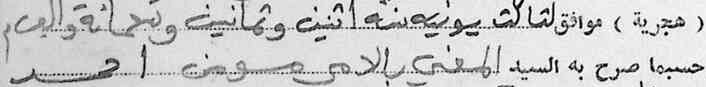 ( هجرية ) موافق لثالث يونيه سنة اثنين وثمانين وتسعمائة والف م
حسبما صرح به السيد المفتي بالامر احمد